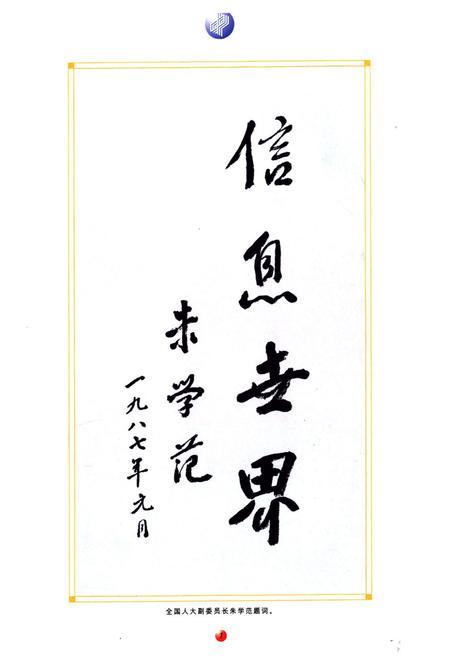 信息世界
朱学范
一九八七年元月
全国人大副委员长朱学范题词。